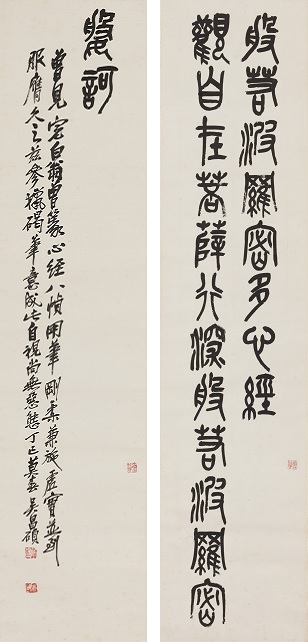 般若波羅密多心經
觀自在菩薩行深般若波羅密
媻訶
曾見完白翁曾篆心經八幀用筆剛柔兼施虛實並到
服膺久之茲參獵碣筆意成此自視尚無惡態丁巳莫春吳昌碩